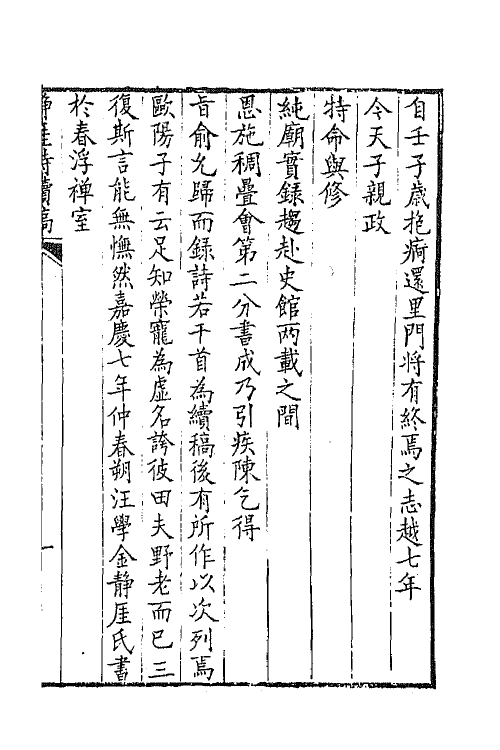 自壬子歲抱痾還里門將有終焉之志越七年
今天子親政
特命與修
純廟實錄趨赴史館兩載之間
恩施稠疊會第二分書成乃引疾陳乞得
旨俞允歸而錄詩若干首為續稿後有所作以次列焉
歐陽子有云足知榮寵為虛名誇彼田夫野老而已三
復斯言能無憮然嘉慶七年仲春朔汪學金静厓氏書
於春浮禅室
静厓詩續稿
一